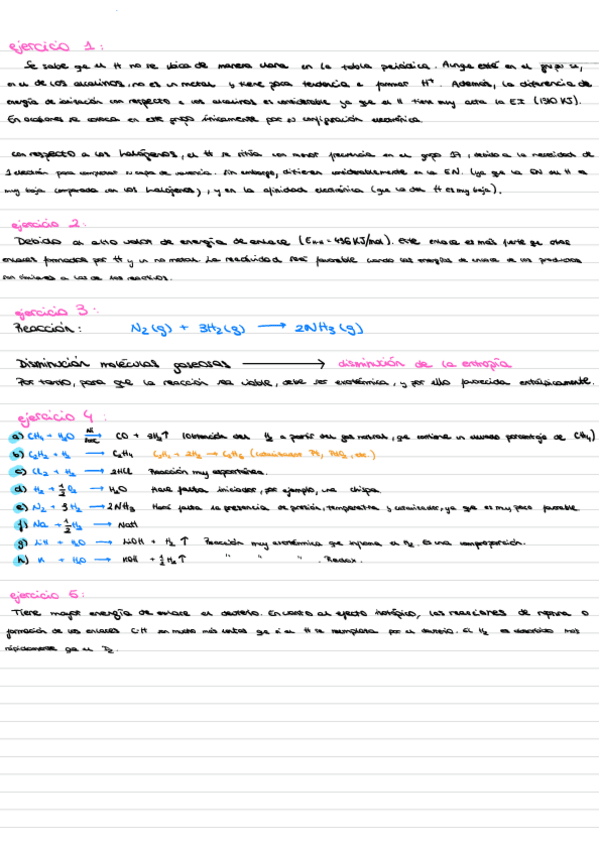 ejercicio 1:
Se sabe que el H no se ubica de manera clara en la tabla periódica. Aunque esté en el grupo
en el de los alcalinos, no es un metal y tiene poca tendencia a formar H⁺. Además, la diferencia de
energía de ionización con respecto a los alcalinos es considerable ya que el H tiene muy alta la EI (1310 KJ).
En ocasiones se coloca en este grupo únicamente por su configuración electrónica.
Con respecto a los halógenos, el H se sitúa con menor frecuencia en el grupo 17, debido a la necesidad de
1 electrón para completar su capa de valencia. Sin embargo, difieren considerablemente en la EN. (ya que la EN del H es
muy baja comparada con los halógenos), y en la afinidad electrónica (que la del H es muy baja).
ejercicio 2:
Debido al alto valor de energía de enlace (E = 436 KJ/mol). Este enlace es más fuerte que otros
enlaces formados por H y un no metal. La reactividad será favorable cuando las energías de enlace de los productos
son similares a las de los reactivos.
ejercicio 3:
Reacción: N₂(g) + 3H₂(g) → 2NH₃(g)
Disminución moléculas gaseosas → disminución de la entropía
Por tanto, para que la reacción sea viable, debe ser exotérmica, y por ello favorecida entálpicamente.
ejercicio 4:
a) CH₄ + H₂O → CO + 3H₂↑ (obtención del H₂ a partir del gas natural, que contiene un elevado porcentaje de CH₄)
b) C₂H₂ + H₂ → C₂H₄ C₂H₂ + 2H₂ → C₂H₆ (catalizador Pt, etc.)
c) Cl₂ + H₂ → 2HCl Reacción muy espontánea.
d) H₂ + ½O₂ → H₂O Hace falta iniciador, por ejemplo, una chispa.
e) N₂ + 3H₂ → 2NH₃ Hace falta la presencia de presión, temperatura y catalizador, ya que es muy poco favorable
f) Na + ½H₂ → NaH
g) LiH + H₂O → LiOH + H₂↑ Reacción muy exotérmica que inflama el H₂. Es una comproporción.
h) K + H₂O → KOH + ½H₂↑ " " ". Redox.
ejercicio 5:
Tiene mayor energía de enlace el deuterio. En cuanto al efecto isotópico, las reacciones de ruptura o
formación de los enlaces C-H son mucho más lentas que si el H se reemplaza por el deuterio. El H₂ es más
rápidamente que el D₂.